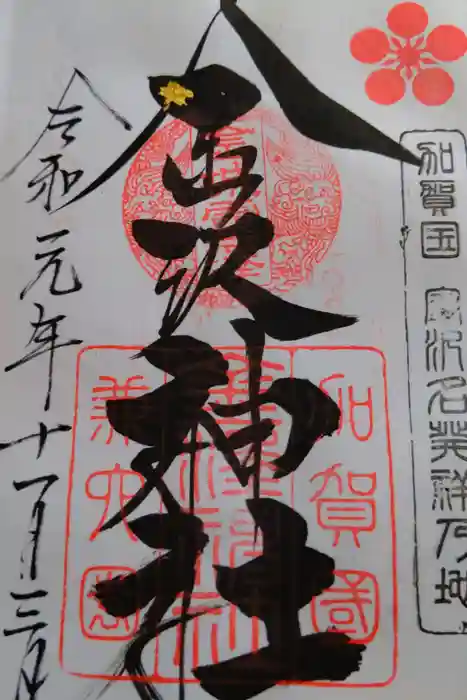 加賀国 金沢名発祥乃地
金沢神社
加賀國
金澤神社
兼六園
令和元年十一月三日